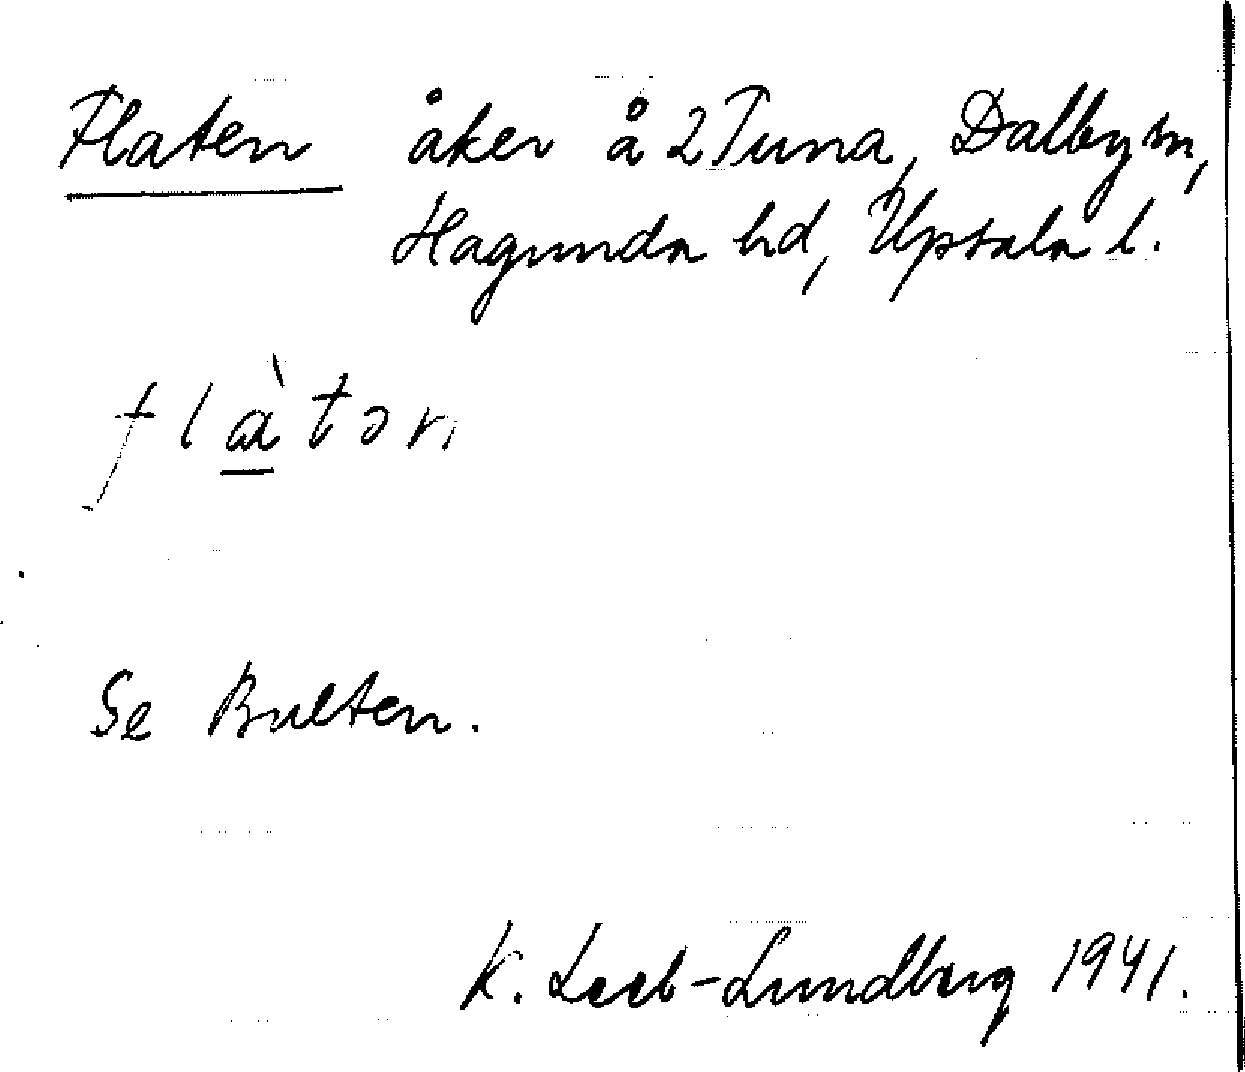 Flaten åker å 2 Tuna, Dalby sn,
Hagunda hd, Upsala l.
flàtən
Se Bulten.
K. Leeb-Lundberg 1941.